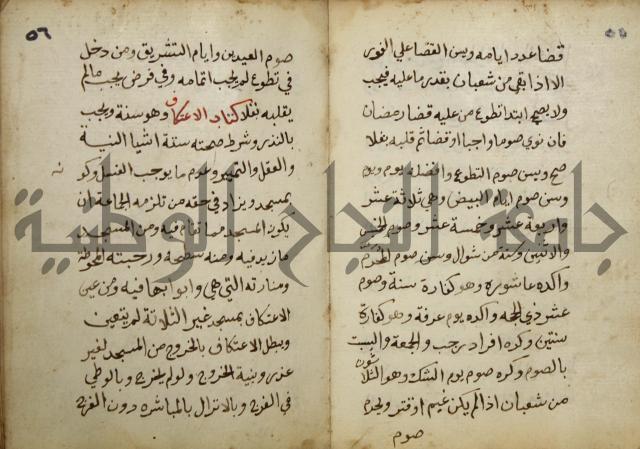 ٥٥
قضا عدد ايامه ويسن القضا علي الفور
الا اذا بقي من شعبان بقدر ما عليه فيجب
ولا يصح ابتدا تطوع من عليه قضا رمضان
فان نوي صوما واجبا او قضا ثم قلبه نفلا
صح ويسن صوم التطوع وافضله يوم ويوم
وسن صوم ايام البيض وهي ثلاثة عشر
واربعة عشر وخمسة عشر وصوم الخميس
والاثنين وستة من شوال وسن صوم المحرم
واكده عاشوره وهو كفارة سنة وصوم
عشر ذي الحجه واكده يوم عرفة وهو كفارة
سنتين وكره افراد رجب والجمعة والسبت
بالصوم وكره صوم يوم الشك وهو الثلاثون
من شعبان اذا لم يكن غيم او قتر ويحرم
صوم
٥٦
صوم العيدين وايام التشريق ومن دخل
في تطوع لم يجب اتمامه وفي فرض يجب مالم
يقلبه نفلا كتاب الاعتكاف وهو سنة ويجب
بالنذر وشرط صحته ستة اشيا النية
والعقل والتمييز وعدم ما يوجب الغسل وكو
نه
بمسجد ويزاد في حقه من تلزمه الجماعة ان
يكون المسجد مما تقام فيه ومن المسجد
ما زيد فيه ومنه سطحه ورحبته المحوطة
ومنارته التي هي وابوابها فيه ومن عين
الاعتكاف بمسجد غير الثلاثة لم يتعين
ويبطل الاعتكاف بالخروج من المسجد لغير
عذر وبنية الخروج ولو لم يخرج وبالوطي
في الفرج وبالانزال بالمباشره دون الفرج
جامعة النجاح الوطنية